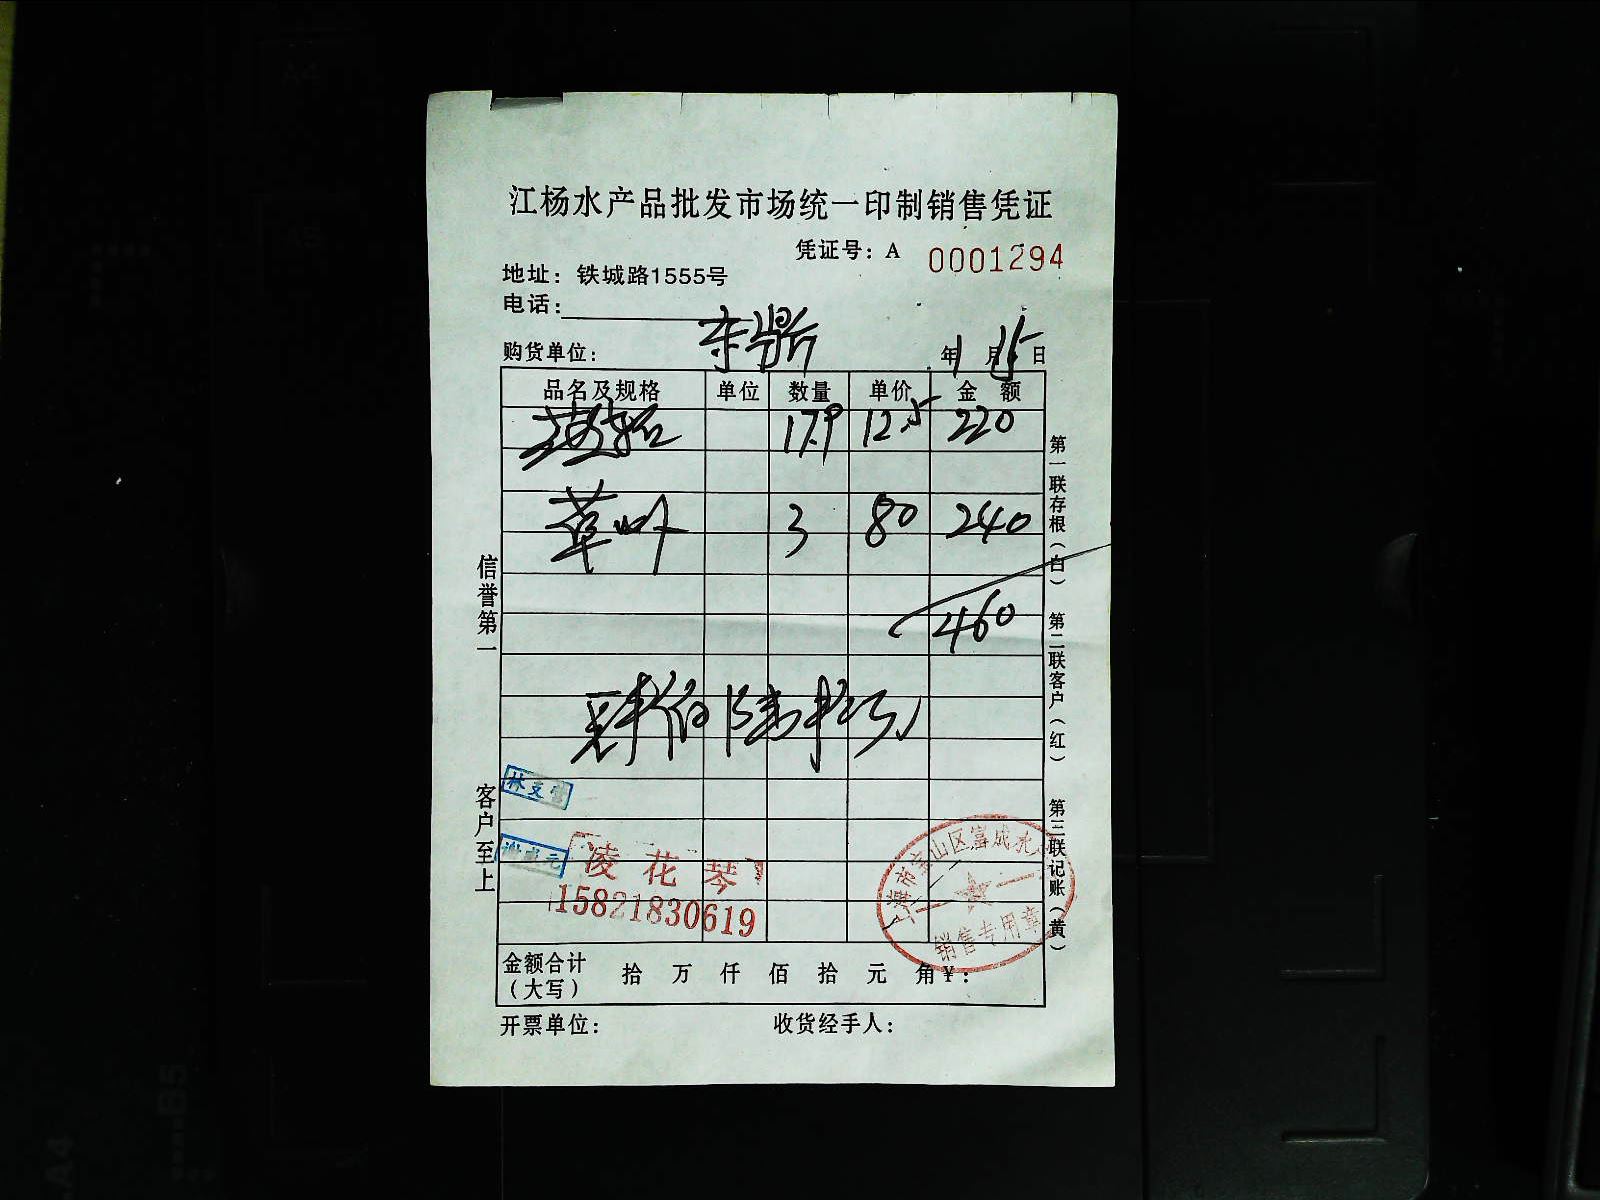 江杨水产品批发市场统一印制销售凭证
凭证号：A 0001294
地址：铁城路1555号
电话：
购货单位： 年1月15日
品名及规格 单位 数量 单价 金 额
17.9 12.5 220
草叶 3 80 240
460
肆佰陆拾元
林支雪
谢成元
凌花琴
15821830619
上海市宝山区富成水
销售专用章
金额合计（大写） 拾 万 仟 佰 拾 元 角￥：
开票单位： 收货经手人：
信誉第一
客户至上
第一联存根（白）
第二联客户（红）
第三联记账（黄）